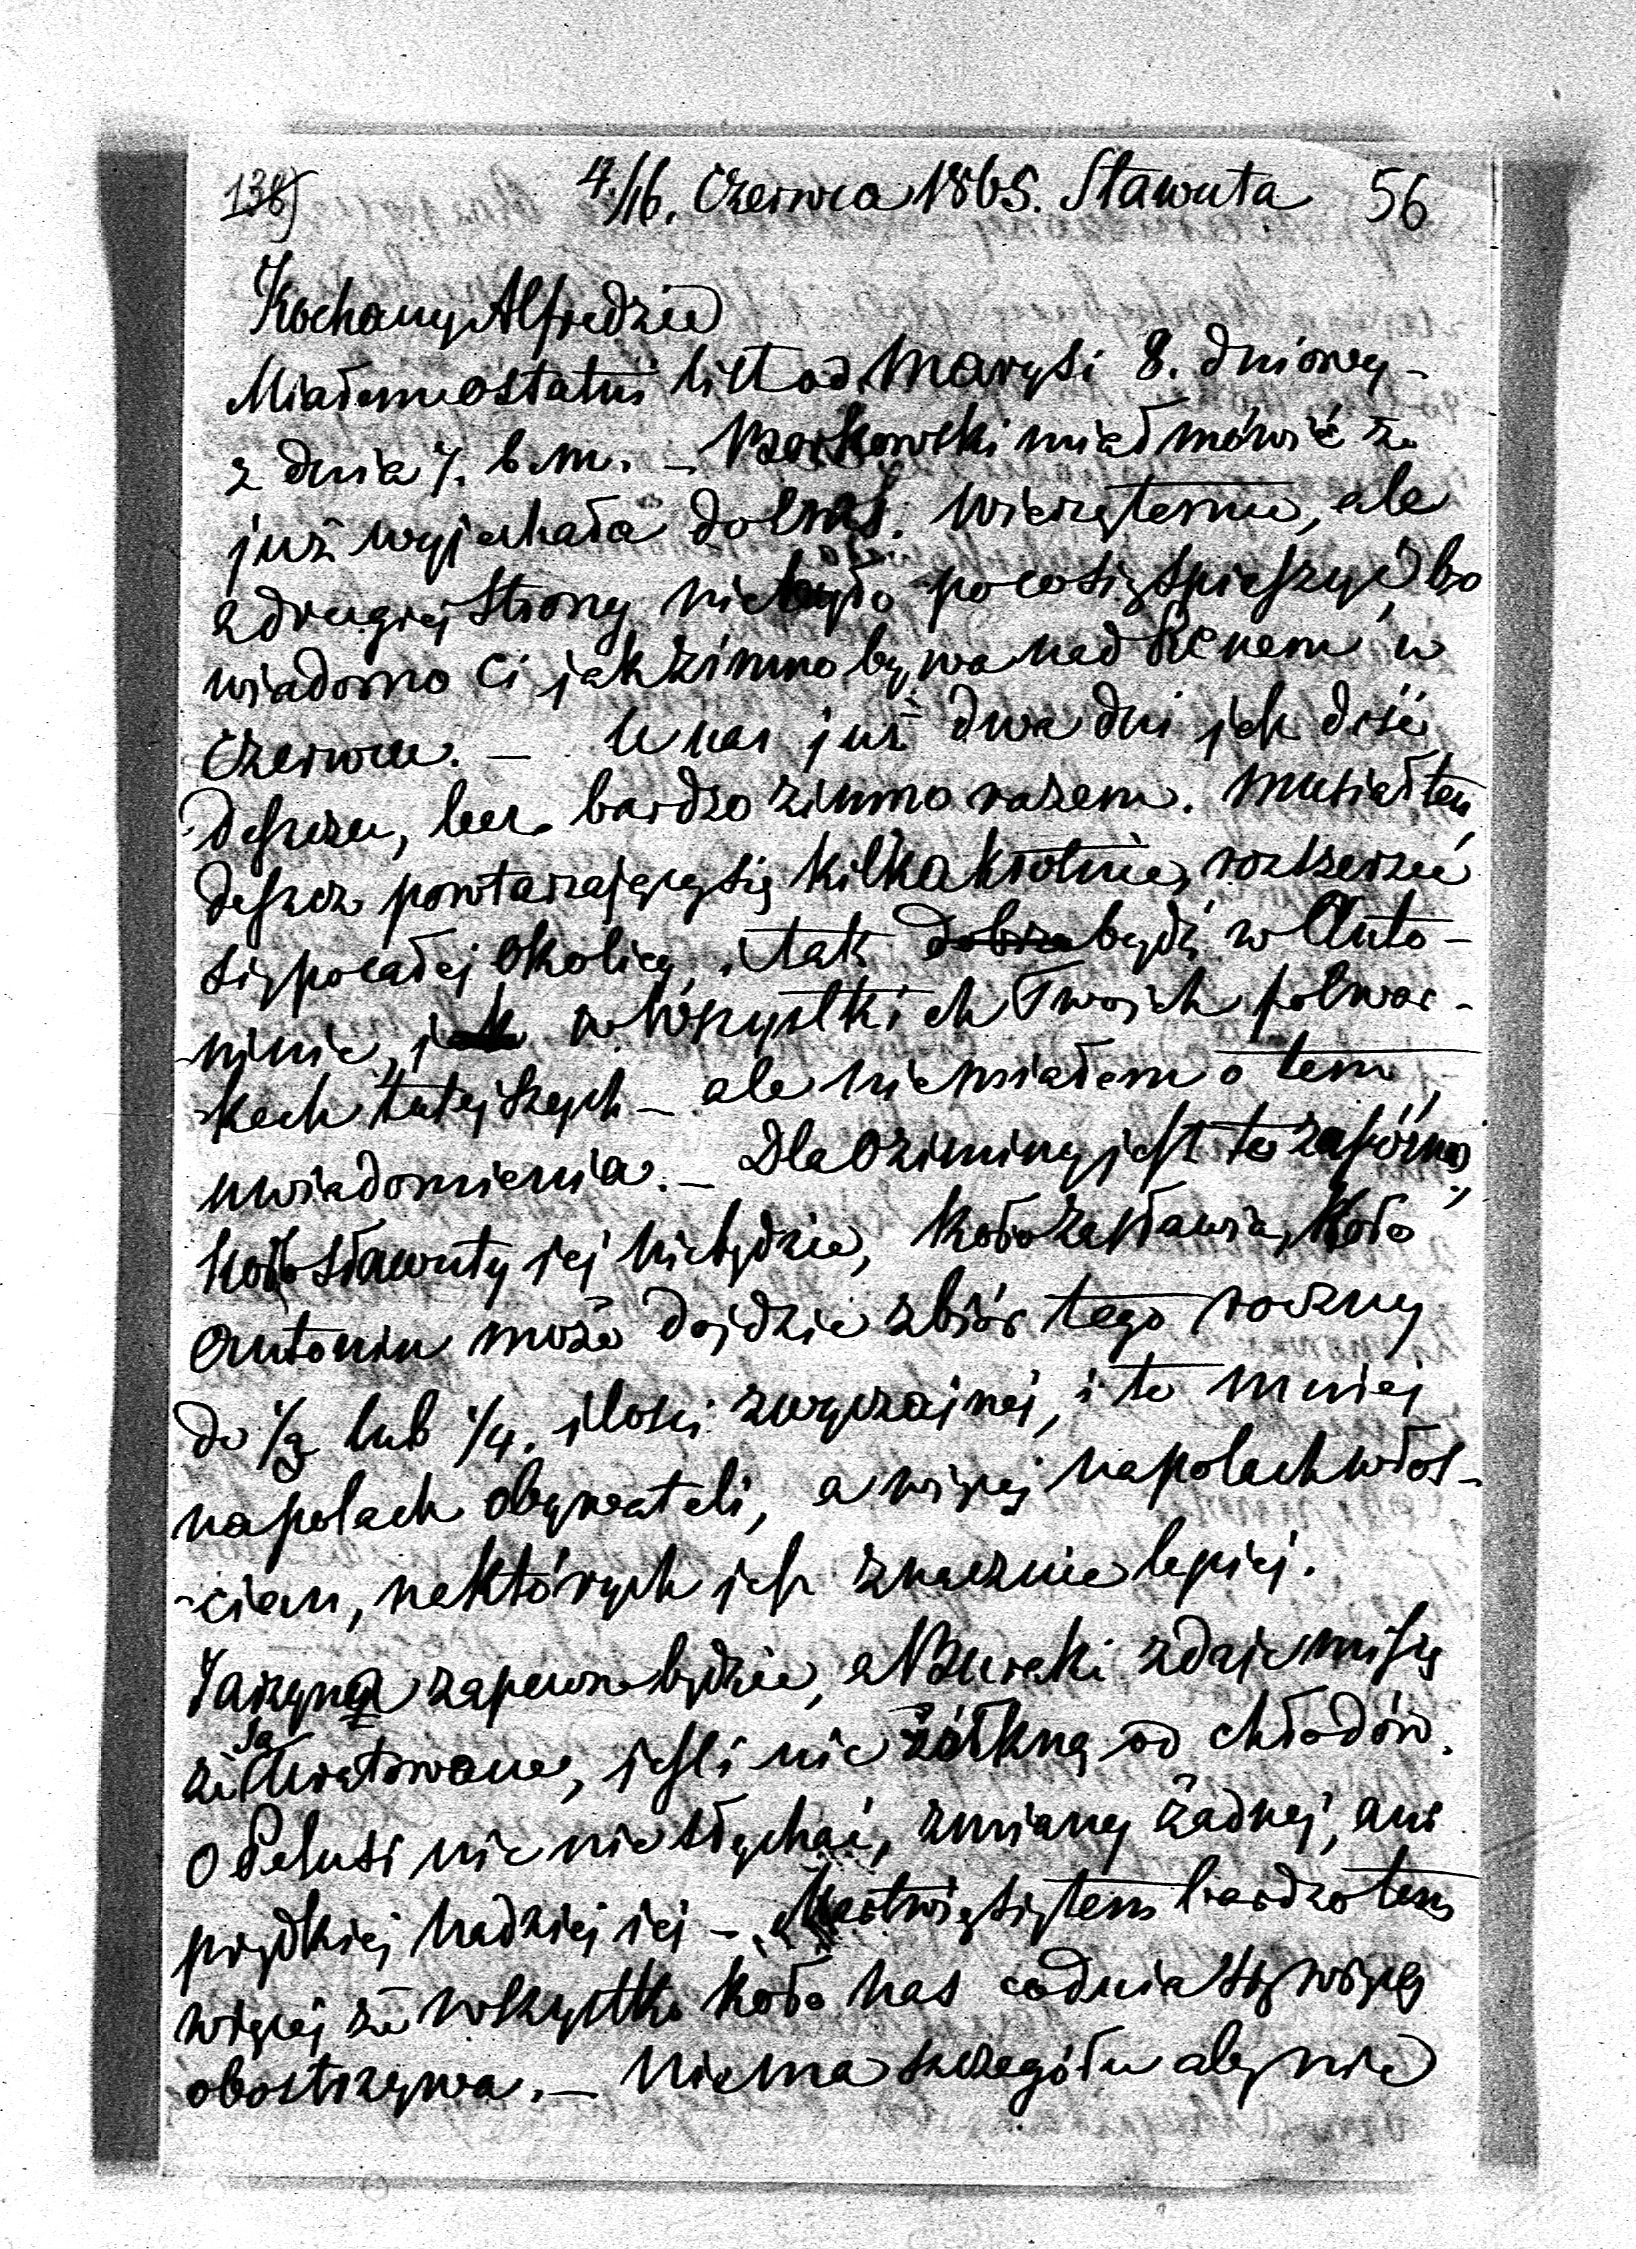 138)
4./16. Czerwca 1865. Sławuta 56
Kochany Alfredzie
Miałem ostatni list od Marysi 8. dniowy -
z dnia 7. b.m. - miał mówić że
już wyjechała do was. Wierzę temu, ale
z drugiej strony nie było po co się spieszyć, bo
wiadomo Ci jak zimno bywa nad Renem w
Czerwcu. - U nas już dwa dni jak dość
deszczu, lecz bardzo zimno razem. Musiał ten
deszcz powtarzający się kilkakrotnie, rozszerzać
się po całej okolicy, i tak dobrze będź w Anto-
-ninie, jak w wszystkich Twoich folwar-
-kach tutejszych - ale nie miałem o tem
uwiadomienia. - Dla Oziminy jest to zapóźno,
koło Sławuty jej nie będzie, koło Zasławia, koło
Antonin może dojdzie zbiór tego roczny
do 1/3 lub 1/4. ilości zwyczajnej, i to mniej
na polach obywateli, a więcej na polach włoś-
-cian, na których jest znacznie lepiej.
Jarzyna zapewne będzie, a Buraki zdaje mi się
że są uratowane, jeśli nie żółkną od chłodów.
O Pelusi nic nie słychać, zmiany żadnej, ani
prędkiej nadziei jej - Martwię się tem bardzo tem
więcej że wszystko koło nas co dnia się więcej
obostrzywa. - Nie ma szczegółu aby nie